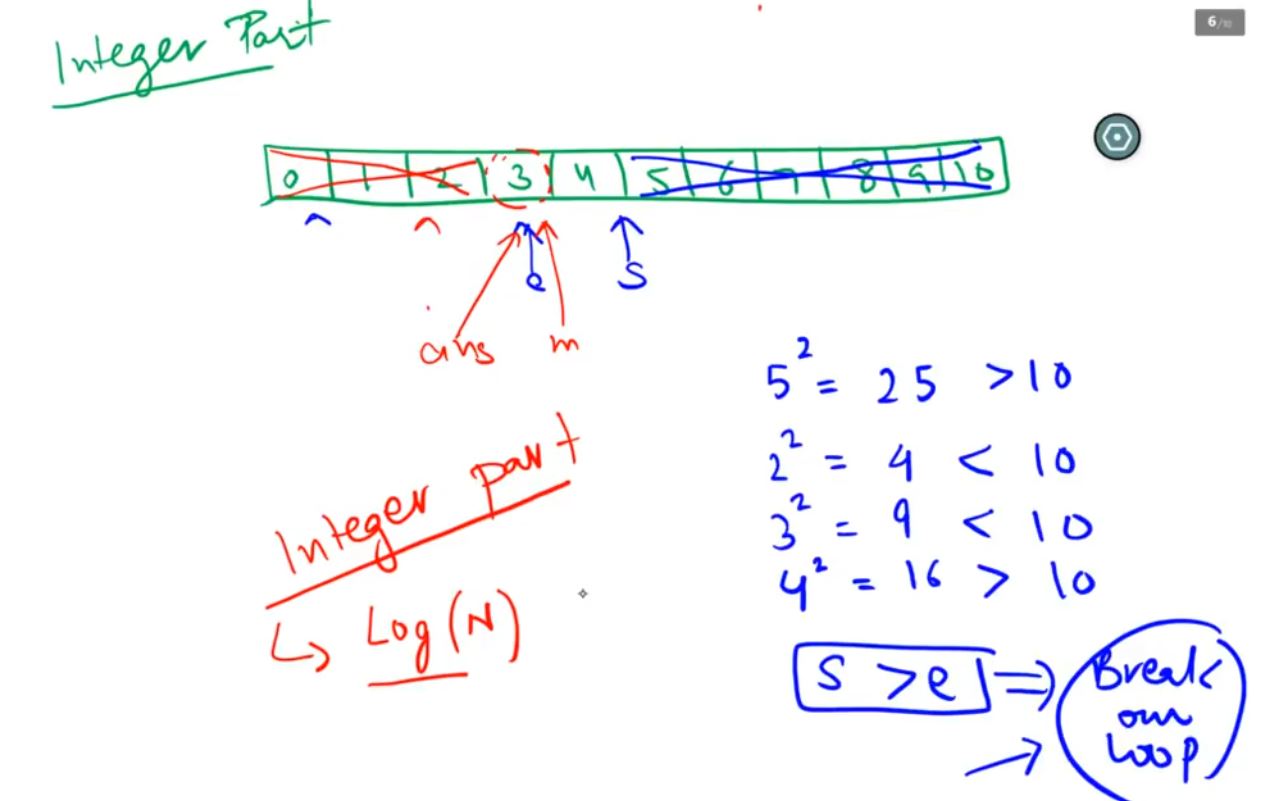 6/10
Integer Part
0 1 2 3 4 5 6 7 8 9 10
e S
ans m
5² = 25 > 10
2² = 4 < 10
3² = 9 < 10
4² = 16 > 10
Integer part
↳ Log(N)
S > e ⇒ Break our Loop
→